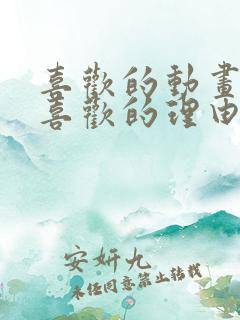 喜歡的動畫
喜歡的理由
安妍九
未任同意禁止转载